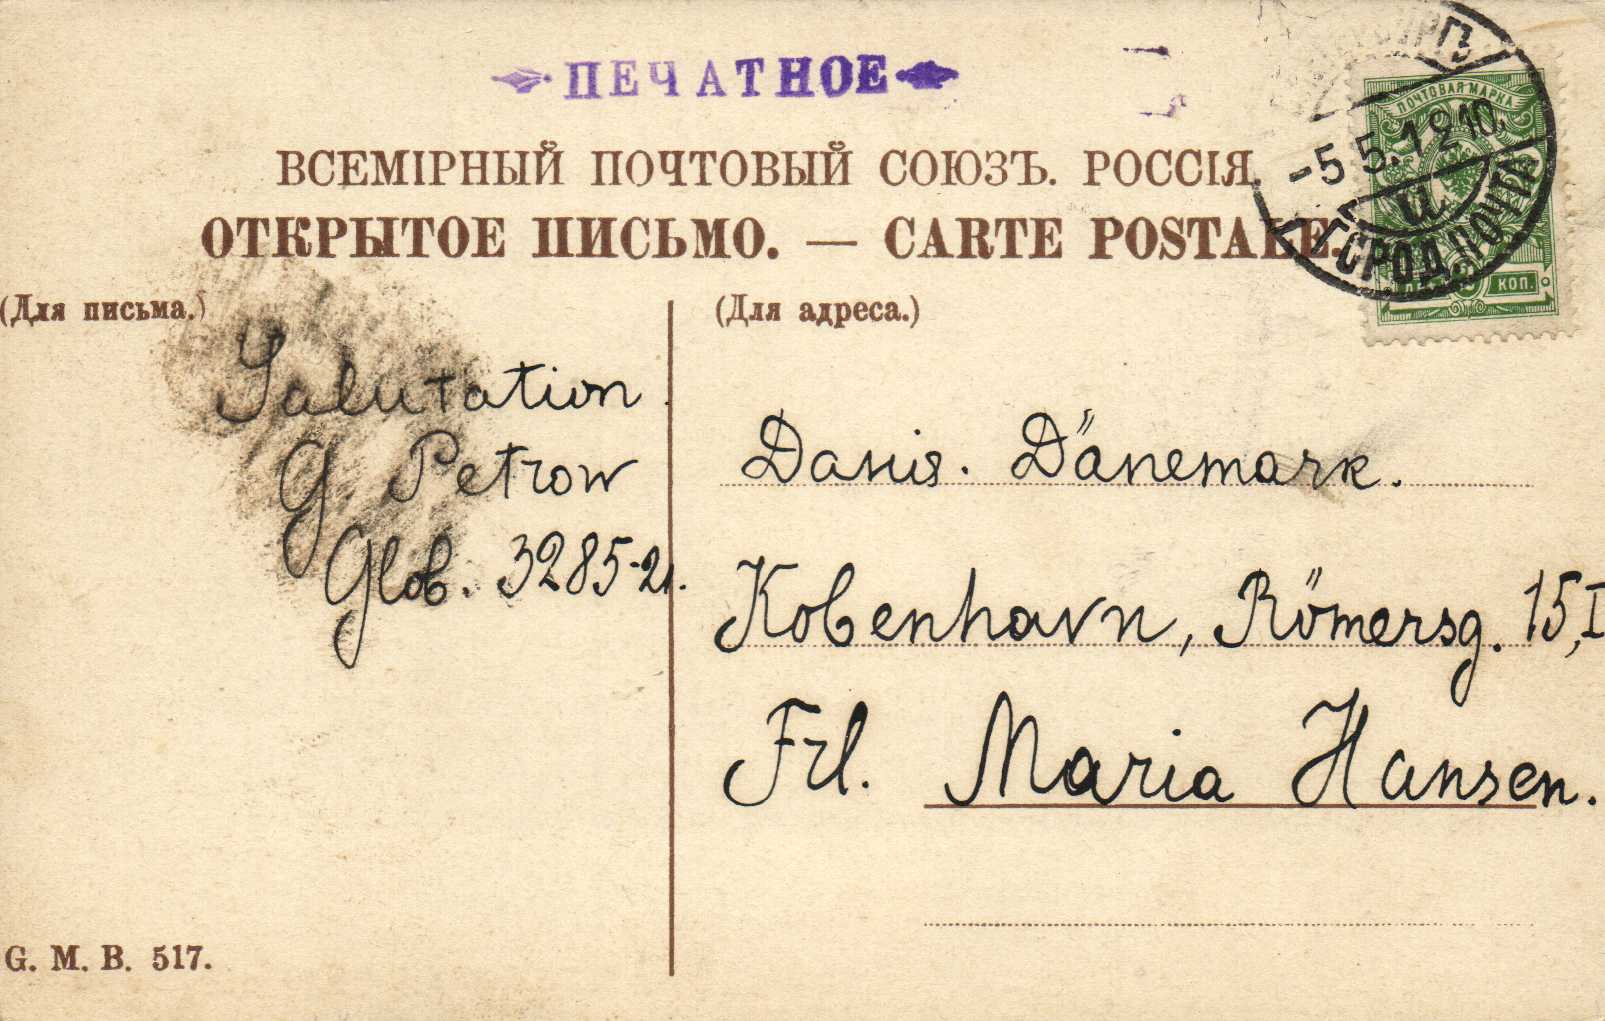 ПЕЧАТНОЕ
ВСЕМІРНЫЙ ПОЧТОВЫЙ СОЮЗЪ. РОССІЯ.
ОТКРЫТОЕ ПИСЬМО. — CARTE POSTALE.
ПОЧТОВАЯ МАРКА
-5.5.12 10.
ГОРОД. ПОЧТА
КОП.
(Для письма.)
Salutation.
G Petrow
Glob. 3285-21.
(Для адреса.)
Danis. Dänemark.
Kobenhavn, Römersg. 15, I
Frl. Maria Hansen.
G. M. B. 517.